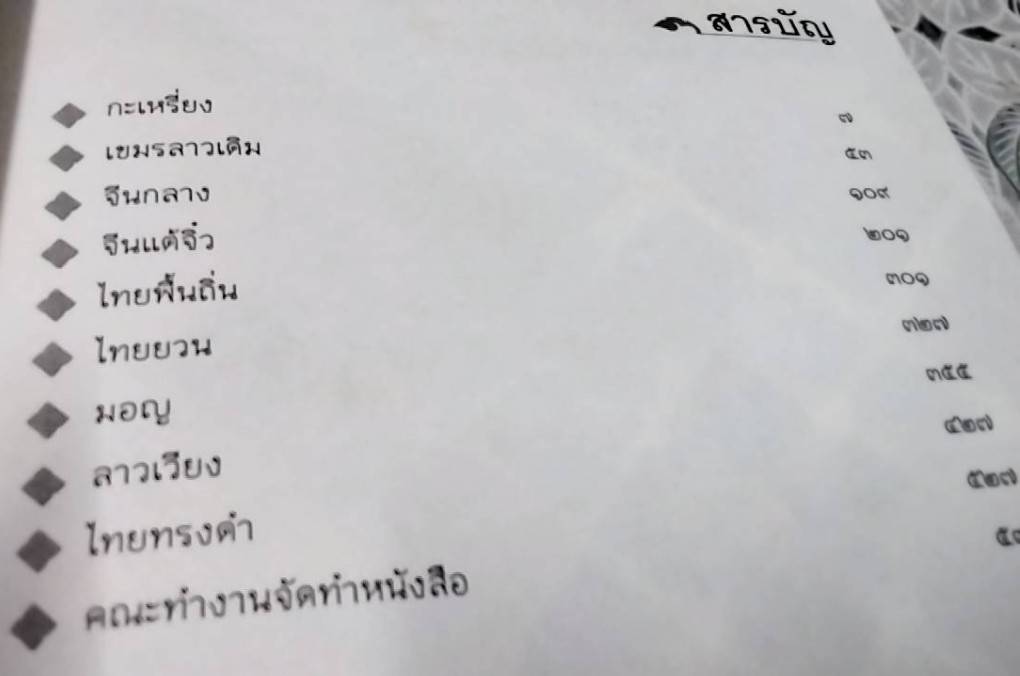 สารบัญ
กะเหรี่ยง ๗
เขมรลาวเดิม ๕๓
จีนกลาง ๑๐๙
จีนแต้จิ๋ว ๒๐๑
ไทยพื้นถิ่น ๓๐๑
ไทยยวน ๓๒๗
มอญ ๓๕๕
ลาวเวียง ๔๒๗
ไทยทรงดำ ๕๒๗
คณะทำงานจัดทำหนังสือ